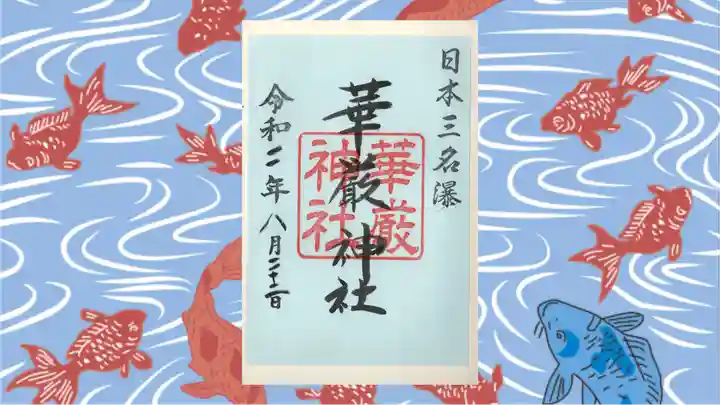 日本三名瀑
華厳神社
華厳
神社
令和二年八月二十二日